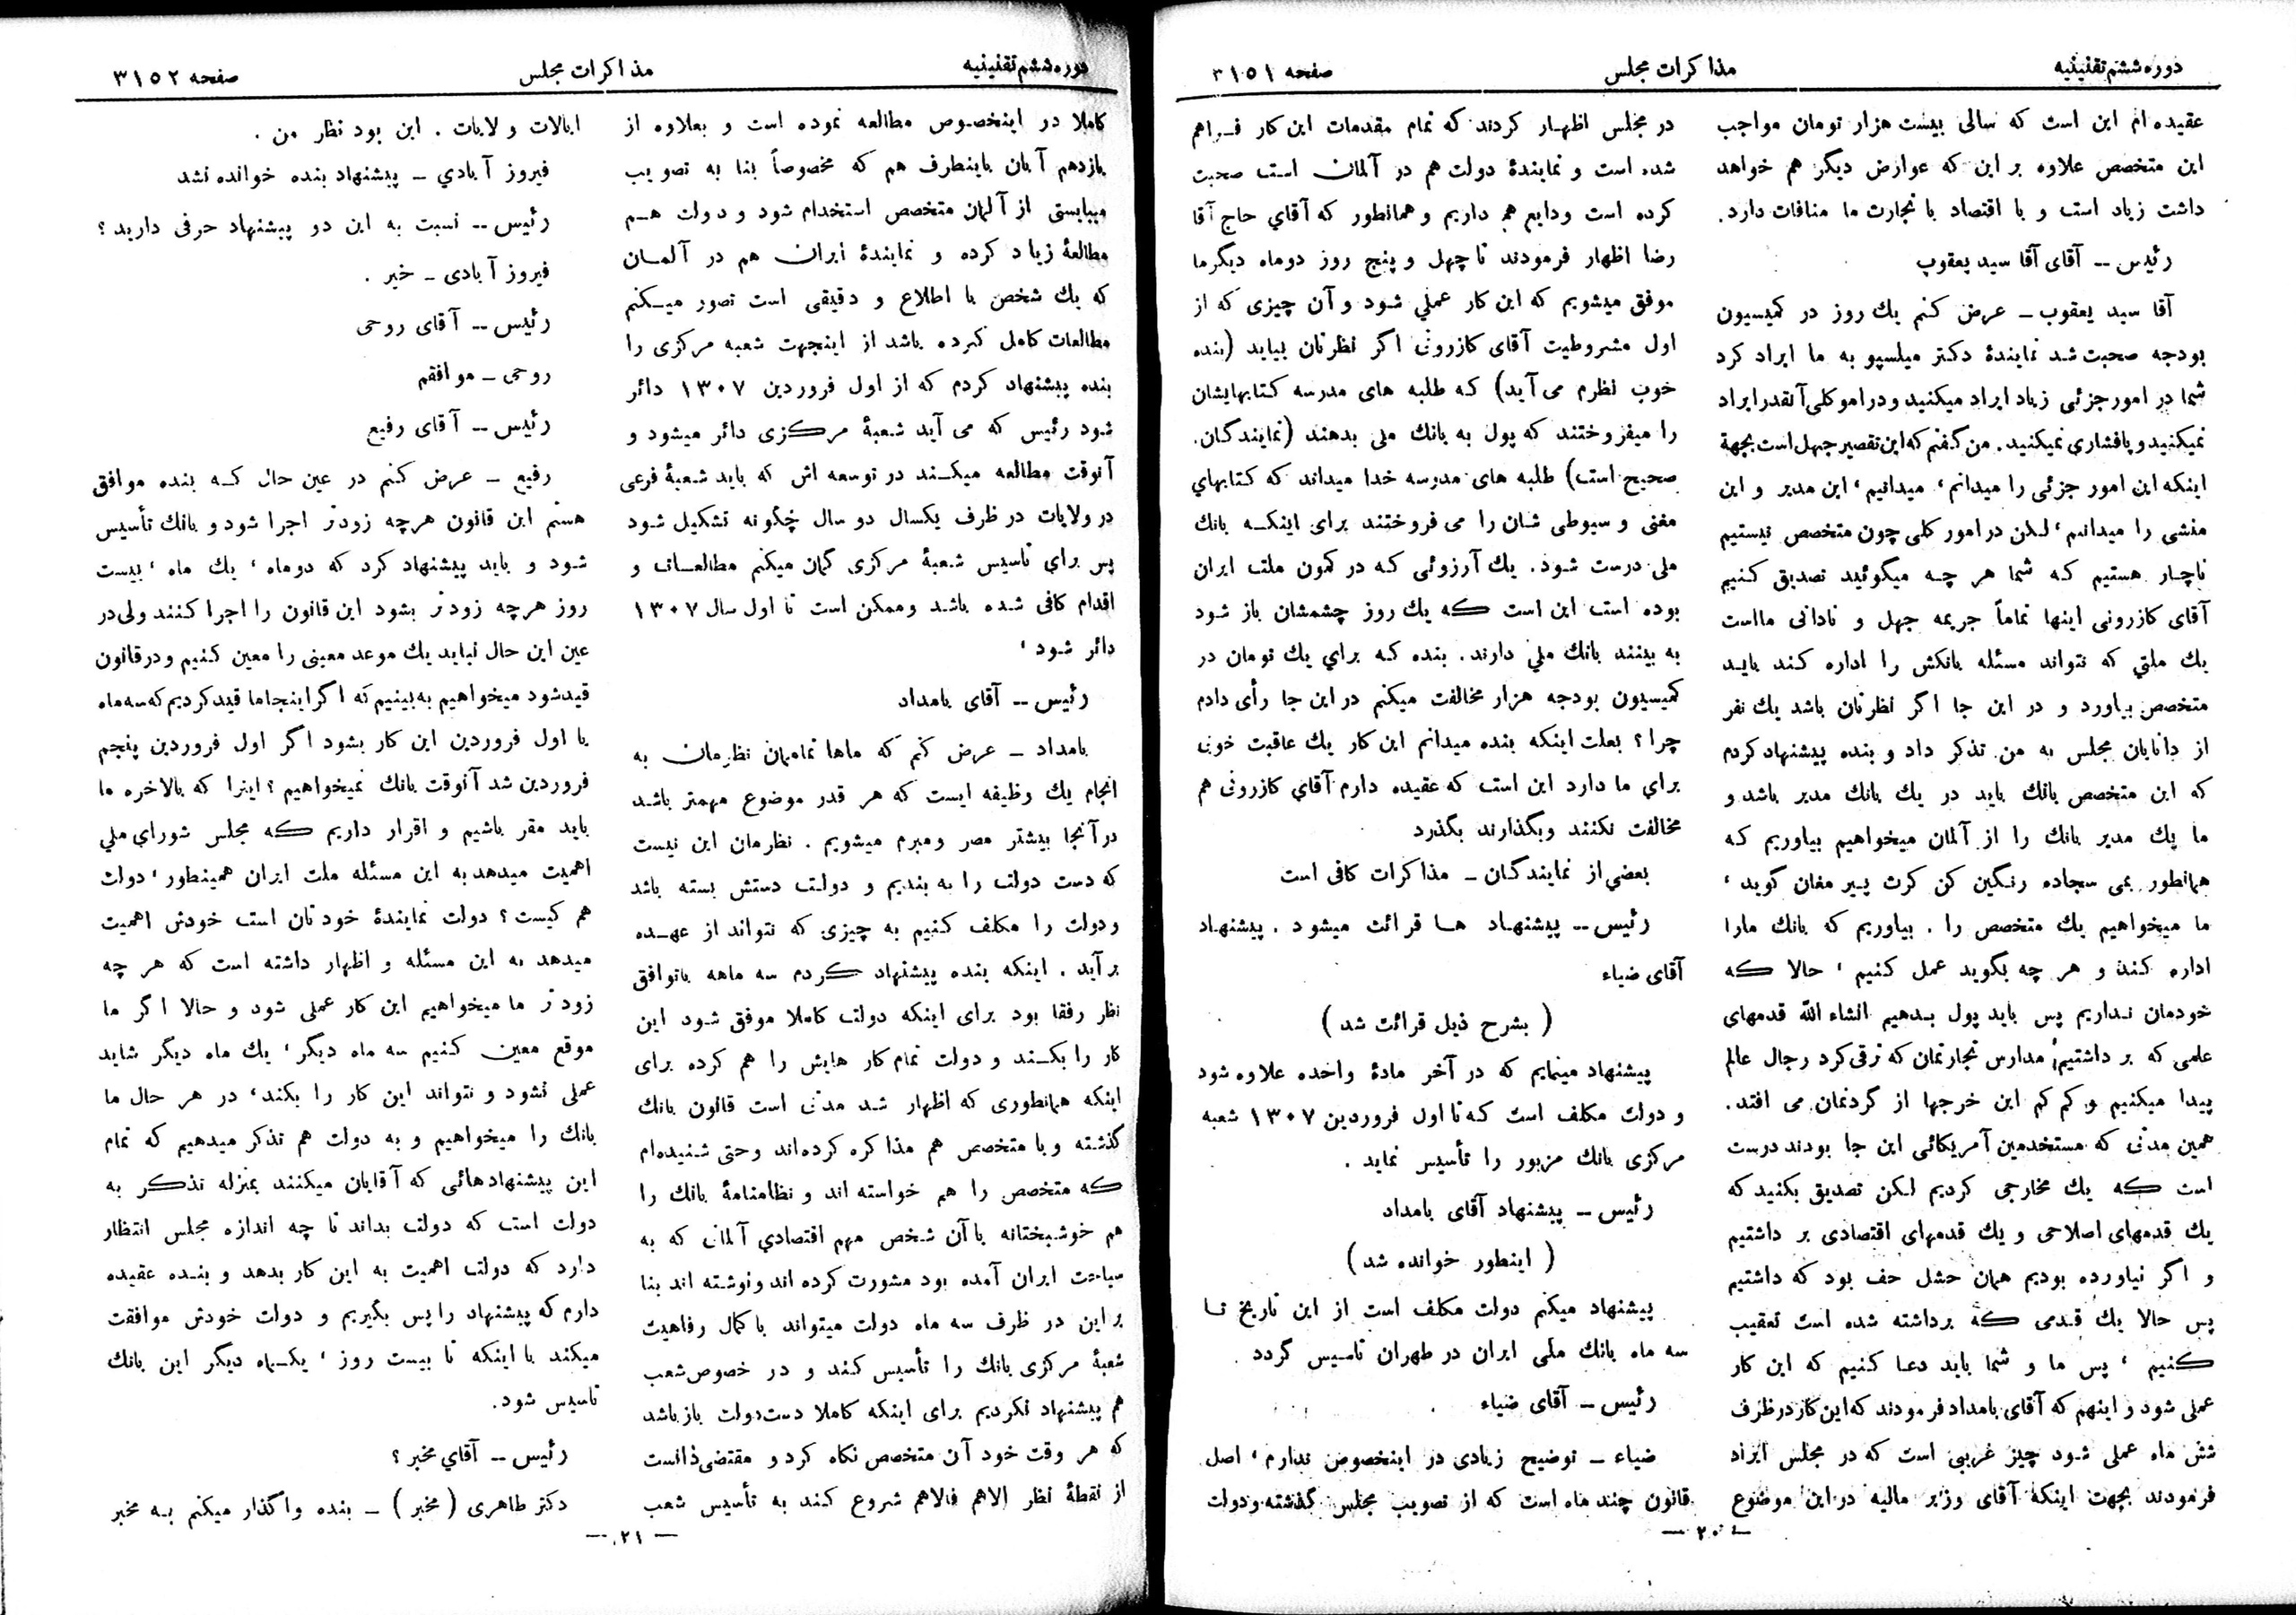 دوره ششم تقنینیه
مذاکرات مجلس
صفحه ۳۱۵۱
عقیده ام این است که سالی بیست هزار تومان مواجب
این متخصص علاوه بر این که عوارض دیگر هم خواهد
داشت زیاد است و با اقتصاد با تجارت ما منافات دارد.
رئیس -- آقای آقا سید یعقوب
آقا سید یعقوب - عرض کنم یك روز در کمیسیون
بودجه صحبت شد نمایندۀ دکتر میلسپو به ما ایراد کرد
شما در امور جزئی زیاد ایراد میکنید و در امو کلی آنقدر ایراد
نمیکنید و پافشاری نمیکنید. من گفتم که این تقصیر جهل است بجهة
اینکه این امور جزئی را میدانم ، میدانیم ، این مدیر و این
منشی را میدانیم ، لکن در امور کلی چون متخصص نیستیم
ناچار هستیم که شما هر چه میگوئید تصدیق کنیم
آقای کازرونی اینها تماماً جریمه جهل و نادانی مااست
یك ملتی که نتواند مسئله بانکش را اداره کند باید
متخصص بیاورد و در این جا اگر نظرتان باشد یك نفر
از دانایان مجلس به من تذکر داد و بنده پیشنهاد کردم
که این متخصص بانك باید در یك بانك مدیر باشد و
ما یك مدیر بانك را از آلمان میخواهیم بیاوریم که
همانطور بمی سجاده رنگین کن کرت پیر مغان گوید ،
ما میخواهیم یك متخصص را . بیاوریم که بانك مارا
اداره کند و هر چه بگوید عمل کنیم ، حالا که
خودمان نداریم پس باید پول بدهیم انشاء الله قدمهای
علمی که بر داشتیم مدارس تجارتمان که ترقی کرد رجال عالم
پیدا میکنیم و کم کم این خرجها از گردنمان می افتد.
همین مدتی که مستخدمین آمریکائی این جا بودند درست
است که یك مخارجی کردیم لکن تصدیق بکنید که
یك قدمهای اصلاحی و یك قدمهای اقتصادی بر داشتیم
و اگر نیاورده بودیم همان حشل حف بود که داشتیم
پس حالا یك قدمی که برداشته شده است تعقیب
کنیم ، پس ما و شما باید دعا کنیم که این کار
عملی شود و اینهم که آقای بامداد فرمودند که این کار در ظرف
شش ماه عملی شود چیز غریبی است که در مجلس ایراد
فرمودند بجهت اینکه آقای وزیر مالیه در این موضوع
در مجلس اظهار کردند که تمام مقدمات این کار فراهم
شده است و نمایندۀ دولت هم در آلمان است صحبت
کرده است ودایع هم داریم و همانطور که آقاي حاج آقا
رضا اظهار فرمودند تا چهل و پنج روز دوماه دیگر ما
موفق میشویم که این کار عملي شود و آن چیزی که از
اول مشروطیت آقای کازرونی اگر نظرتان بیاید (بنده
خوب نظرم می آید) که طلبه های مدرسه کتابهایشان
را میفروختند که پول به بانك ملی بدهند (نمایندگان.
صحیح است) طلبه های مدرسه خدا میداند که کتابهاي
مغنی و سیوطی شان را می فروختند برای اینکه بانك
ملی درست شود. یك آرزوئی که در کمون ملت ایران
بوده است این است که یك روز چشمشان باز شود
به بینند بانك ملي دارند. بنده که براي یك تومان در
کمیسیون بودجه هزار مخالفت میکنم در این جا رأی دادم
چرا ؟ بعلت اینکه بنده میدانم این کار یك عاقبت خوبی
براي ما دارد این است که عقیده دارم آقاي کازرونی هم
مخالفت نکنند وبگذارند بگذرد
بعضي از نمایندگان - مذاکرات کافی است
رئیس -- پیشنهاد ها قرائت میشود . پیشنهاد
آقای ضیاء
( بشرح ذیل قرائت شد )
پیشنهاد مینمایم که در آخر مادۀ واحده علاوه شود
و دولت مکلف است که تا اول فروردین ۱۳۰۷ شعبه
مرکزی بانك مزبور را تأسیس نماید .
رئیس - پیشنهاد آقای بامداد
( اینطور خوانده شد )
پیشنهاد میکنم دولت مکلف است از این تاریخ تا
سه ماه بانك ملی ایران در طهران تاسیس گردد .
رئیس - آقای ضیاء
ضیاء - توضیح زیادی در اینخصوص ندارم ، اصل
قانون چند ماه است که از تصویب مجلس گذشته و دولت
— ۲۰ —
دوره ششم تقنینیه
مذاکرات مجلس
صفحه ۳۱۵۲
کاملا در اینخصوص مطالعه نموده است و بعلاوه از
یازدهم آبان باینطرف هم که مخصوصاً بنا به تصویب
میبایستی از آلمان متخصص استخدام شود و دولت هم
مطالعۀ زیاد کرده و نمایندۀ ایران هم در آلمان
که یك شخص با اطلاع و دقیقی است تصور میکنم
مطالعات کامل کرده باشد از اینجهت شعبه مرکزی را
بنده پیشنهاد کردم که از اول فروردین ۱۳۰۷ دائر
شود رئیس که می آید شعبۀ مرکزی دائر میشود و
آنوقت مطالعه میکند در توسعه اش که باید شعبۀ فرعی
در ولایات در ظرف یکسال دو سال چگونه تشکیل شود
پس براي تاسیس شعبۀ مرکزی گمان میکنم مطالعات و
اقدام کافی شده باشد وممکن است تا اول سال ۱۳۰۷
دائر شود ،
رئیس -- آقای بامداد
بامداد - عرض کنم که ماها تمامان نظرمان به
انجام یك وظیفه ایست که هر قدر موضوع مهمتر باشد
در آنجا بیشتر مصر ومبرم میشویم . نظرمان این نیست
که دست دولت را به بندیم و دولت دستش بسته باشد
ودولت را مکلف کنیم به چیزی که نتواند از عهده
بر آید . اینکه بنده پیشنهاد کردم سه ماهه باتوافق
نظر رفقا بود برای اینکه دولت کاملا موفق شود این
کار را بکند و دولت تمام کار هایش را هم کرده برای
اینکه همانطوری که اظهار شد مدتی است قانون بانك
گذشته و با متخصص هم مذاکره کرده‌اند وحتی شنیده‌ام
که متخصص را هم خواسته اند و نظامنامۀ بانك را
هم خوشبختانه با آن شخص مهم اقتصادي آلمانی که به
سیاحت ایران آمده بود مشورت کرده اند ونوشته اند بنا
بر این در ظرف سه ماه دولت میتواند با کمال رفاهیت
شعبۀ مرکزی بانك را تأسیس کند و در خصوص شعب
هم پیشنهاد نکردیم برای اینکه کاملا دست دولت باز باشد
که هر وقت خود آن متخصص نگاه کرد و مقتضی دانست
از نقطۀ نظر الاهم فالاهم شروع کند به تأسیس شعب
ایالات و لایات . این بود نظر من .
فیروز آبادي - پیشنهاد بنده خوانده نشد
رئیس -- نسبت به این دو پیشنهاد حرفی دارید ؟
فیروز آبادی - خیر .
رئیس -- آقای روحی
روحی - موافقم
رئیس -- آقای رفیع
رفیع - عرض کنم در عین حال که بنده موافق
هستم این قانون هرچه زودتر اجرا شود و بانك تأسیس
شود و باید پیشنهاد کرد که دوماه ، یك ماه ، بیست
روز هر چه زودتر بشود این قانون را اجرا کنند ولی در
عین این حال نباید یك موعد معینی را معین کنیم ودر قانون
قید شود میخواهیم به بینیم که اگر اینجا ما قید کردیم که سه ماه
یا اول فروردین این کار بشود اگر اول فروردین پنجم
فروردین شد آنوقت بانك نمیخواهیم ؟ اینرا که بالاخره ما
باید مقر باشیم و اقرار داریم که مجلس شوراي ملي
اهمیت میدهد به این مسئله ملت ایران همینطور ، دولت
هم کیست ؟ دولت نمایندۀ خودتان است خودش اهمیت
میدهد به این مسئله و اظهار داشته است که هر چه
زودتر ما میخواهیم این کار عملی شود و حالا اگر ما
موقع معین کنیم سه ماه دیگر ، یك ماه دیگر شاید
عملی نشود و نتواند این کار را بکند ، در هر حال ما
بانك را میخواهیم و به دولت هم تذکر میدهیم که تمام
این پیشنهادهائی که آقایان میکنند بمنزله تذکر به
دولت است که دولت بداند تا چه اندازه مجلس انتظار
دارد که دولت اهمیت به این کار بدهد و بنده عقیده
دارم که پیشنهاد را پس بگیریم و دولت خودش موافقت
میکند با اینکه تا بیست روز ، یکماه دیگر این بانك
تاسیس شود.
رئیس -- آقاي مخبر ؟
دکتر طاهری ( مخبر ) - بنده واگذار میکنم به مخبر
— ۲۱ —